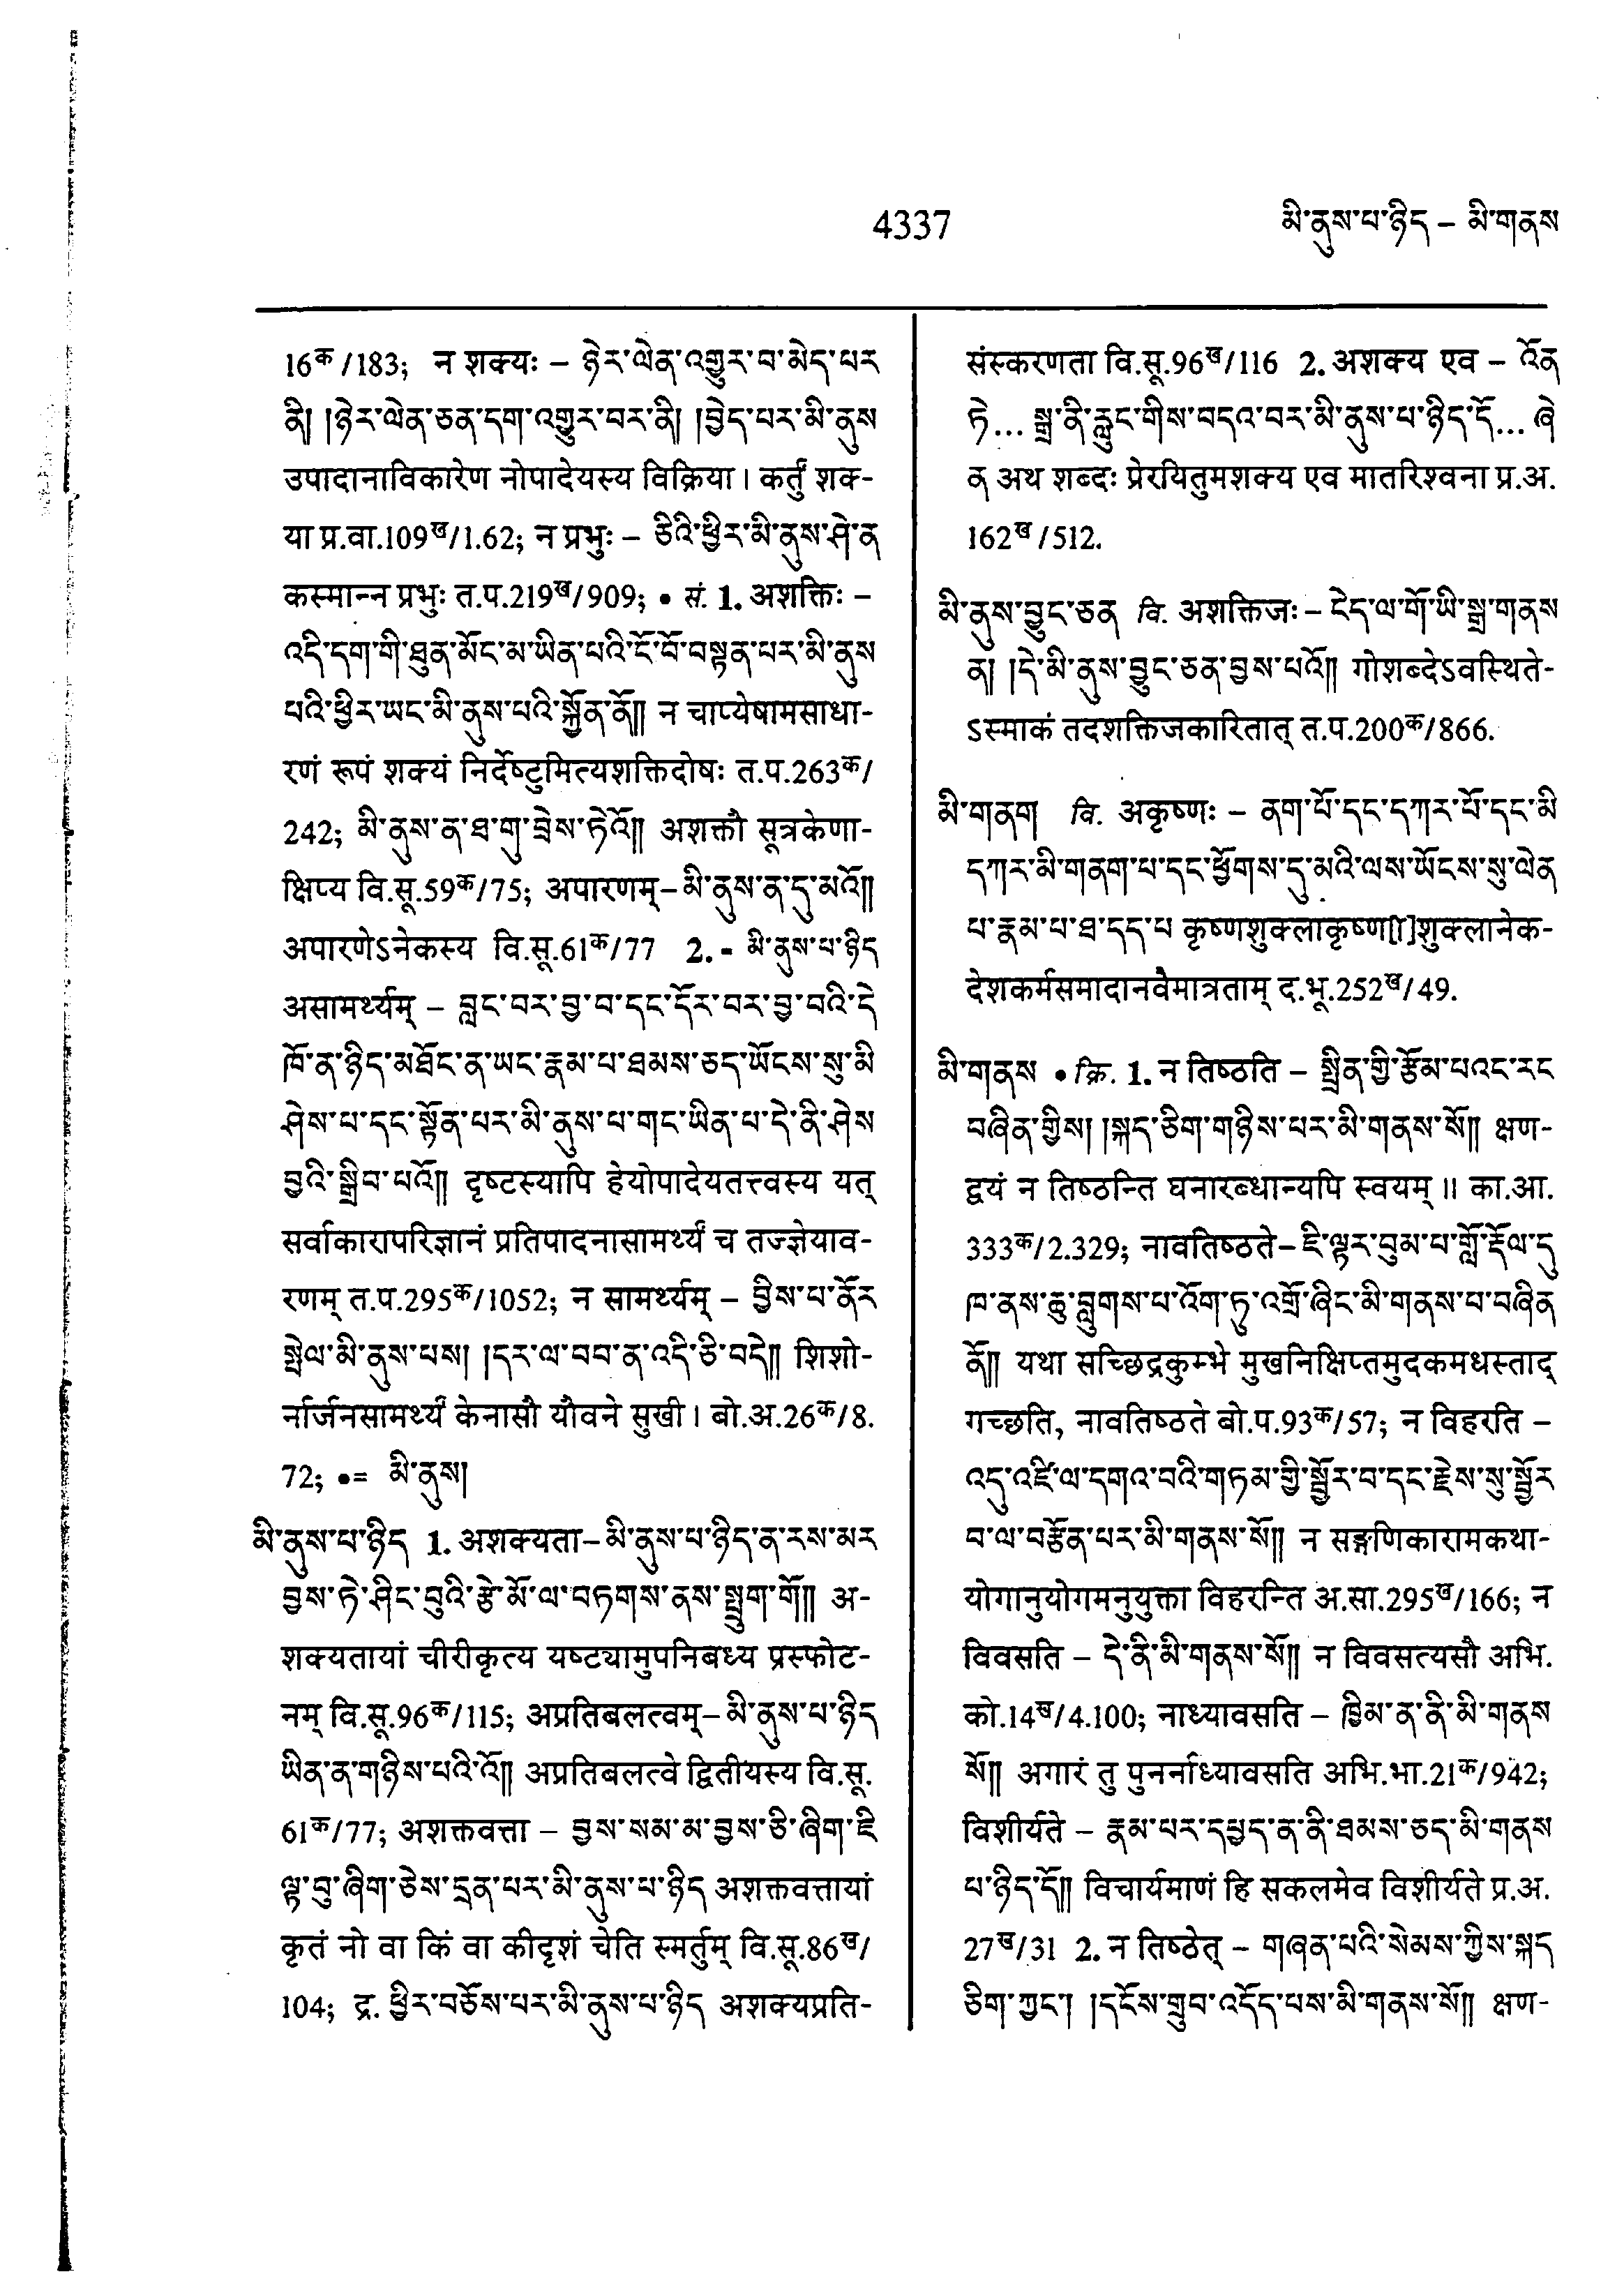 4337
མི་ནུས་པ་ཉིད – མི་གནས
16क/183; न शक्यः – ཉེར་ལེན་འགྱུར་བ་མེད་པར
ནི། །ཉེར་ལེན་ཅན་དག་འགྱུར་བར་ནི། །བྱེད་པར་མི་ནུས
उपादानाविकारेण नोपादेयस्य विक्रिया। कर्तुं शक-
या प्र.वा.109ख/1.62; न प्रभुः – ཅིའི་ཕྱིར་མི་ནུས་ཤེ་ན
कस्मान्न प्रभुः त.प.219ख/909; • सं. 1. अशक्तिः –
འདི་དག་གི་ཐུན་མོང་མ་ཡིན་པའི་ངོ་བོ་བསྟན་པར་མི་ནུས
པའི་ཕྱིར་ཡང་མི་ནུས་པའི་སྐྱོན་ནོ།། न चाप्येषामसाधा-
रणं रूपं शक्यं निर्देष्टुमित्यशक्तिदोषः त.प.263क/
242; མི་ནུས་ན་ཐ་གུ་བྲེས་ཏེའོ།། अशक्तौ सूत्रकेणा-
क्षिप्य वि.सू.59क/75; अपारणम्–མི་ནུས་ན་དུ་མའོ།།
अपारणेऽनेकस्य वि.सू.61क/77 2. = མི་ནུས་པ་ཉིད
असामर्थ्यम् – བླང་བར་བྱ་བ་དང་དོར་བར་བྱ་བའི་དེ
ཁོ་ན་ཉིད་མཐོང་ན་ཡང་རྣམ་པ་ཐམས་ཅད་ཡོངས་སུ་མི
ཤེས་པ་དང་སྟོན་པར་མི་ནུས་པ་གང་ཡིན་པ་དེ་ནི་ཤེས
བྱའི་སྒྲིབ་པའོ།། दृष्टस्यापि हेयोपादेयतत्त्वस्य यत्
सर्वाकारापरिज्ञानं प्रतिपादनासामर्थ्यं च तज्ज्ञेयाव-
रणम् त.प.295क/1052; न सामर्थ्यम् – བྱིས་པ་ནོར
སྤེལ་མི་ནུས་པས། །དར་ལ་བབ་ན་འདི་ཅི་བདེ།། शिशो-
र्नार्जनसामर्थ्यं केनासौ यौवने सुखी। बो.अ.26क/8.
72; •= མི་ནུས།
མི་ནུས་པ་ཉིད 1. अशक्यता–མི་ནུས་པ་ཉིད་ན་རས་མར
བྱས་ཏེ་ཤིང་བུའི་རྩེ་མོ་ལ་བཏགས་ནས་སྤྲུག་གོ།། अ-
शक्यतायां चीरीकृत्य यष्ट्यामुपनिबध्य प्रस्फोट-
नम् वि.सू.96क/115; अप्रतिबलत्वम्–མི་ནུས་པ་ཉིད
ཡིན་ན་གཉིས་པའི་འོ།། अप्रतिबलत्वे द्वितीयस्य वि.सू.
61क/77; अशक्तवत्ता – བྱས་སམ་མ་བྱས་ཅི་ཞིག་ཇི
ལྟ་བུ་ཞིག་ཅེས་དྲན་པར་མི་ནུས་པ་ཉིད अशक्तवत्तायां
कृतं नो वा किं वा कीदृशं चेति स्मर्तुम् वि.सू.86ख/
104; द्र. ཕྱིར་བཅོས་པར་མི་ནུས་པ་ཉིད अशक्यप्रति-
संस्करणता वि.सू.96ख/116 2. अशक्य एव – འོན
ཏེ... སྒྲ་ནི་རླུང་གིས་བདའ་བར་མི་ནུས་པ་ཉིད་དོ... ཞེ
ན अथ शब्दः प्रेरयितुमशक्य एव मातरिश्वना प्र.अ.
162ख/512.
མི་ནུས་བྱུང་ཅན वि. अशक्तिजः – ངེད་ལ་གོ་ཡི་སྒྲ་གནས
ན། །དེ་མི་ནུས་བྱུང་ཅན་བྱས་པའོ།། गोशब्देऽवस्थिते-
ऽस्माकं तदशक्तिजकारितात् त.प.200क/866.
མི་གནག वि. अकृष्णः – ནག་པོ་དང་དཀར་པོ་དང་མི
དཀར་མི་གནག་པ་དང་ཕྱོགས་དུ་མའི་ལས་ཡོངས་སུ་ལེན
པ་རྣམ་པ་ཐ་དད་པ कृष्णशुक्लाकृष्ण[ा]शुक्लानेक-
देशकर्मसमादानवैमात्रताम् द.भू.252ख/49.
མི་གནས • क्रि. 1. न तिष्ठति – སྤྲིན་གྱི་རྩོམ་པའང་རང
བཞིན་གྱིས། །སྐད་ཅིག་གཉིས་པར་མི་གནས་སོ།། क्षण-
द्वयं न तिष्ठन्ति घनारब्धान्यपि स्वयम्॥ का.आ.
333क/2.329; नावतिष्ठते–ཇི་ལྟར་བུམ་པ་གློ་རྡོལ་དུ
ཁ་ནས་ཆུ་བླུགས་པ་འོག་ཏུ་འགྲོ་ཞིང་མི་གནས་པ་བཞིན
ནོ།། यथा सच्छिद्रकुम्भे मुखनिक्षिप्तमुदकमधस्ताद्
गच्छति, नावतिष्ठते बो.प.93क/57; न विहरति –
འདུ་འཛི་ལ་དགའ་བའི་གཏམ་གྱི་སྦྱོར་བ་དང་རྗེས་སུ་སྦྱོར
བ་ལ་བརྩོན་པར་མི་གནས་སོ།། न सङ्गणिकारामकथा-
योगानुयोगमनुयुक्ता विहरन्ति अ.सा.295ख/166; न
विवसति – དེ་ནི་མི་གནས་སོ།། न विवसत्यसौ अभि.
को.14ख/4.100; नाध्यावसति – ཁྱིམ་ན་ནི་མི་གནས
སོ།། अगारं तु पुनर्नाध्यावसति अभि.भा.21क/942;
विशीर्यते – རྣམ་པར་དཔྱད་ན་ནི་ཐམས་ཅད་མི་གནས
པ་ཉིད་དོ།། विचार्यमाणं हि सकलमेव विशीर्यते प्र.अ.
27ख/31 2. न तिष्ठेत् – གཞན་པའི་སེམས་ཀྱིས་སྐད
ཅིག་ཀྱང་། །དངོས་གྲུབ་འདོད་པས་མི་གནས་སོ།། क्षण-